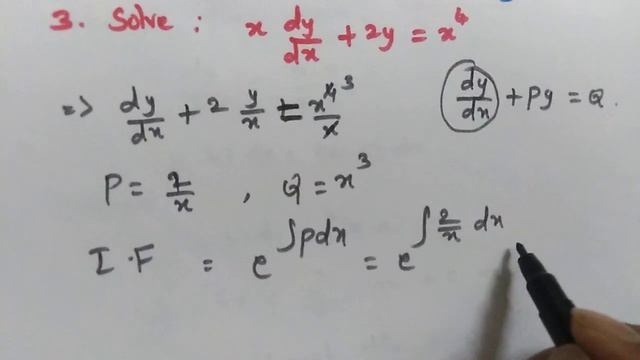 3. Solve : x dy/dx + 2y = x^4
=> dy/dx + 2 y/x = x^4 3/x
dy/dx + py = Q.
P = 2/x , Q = x^3
I.F = e^∫pdx = e^∫2/x dx